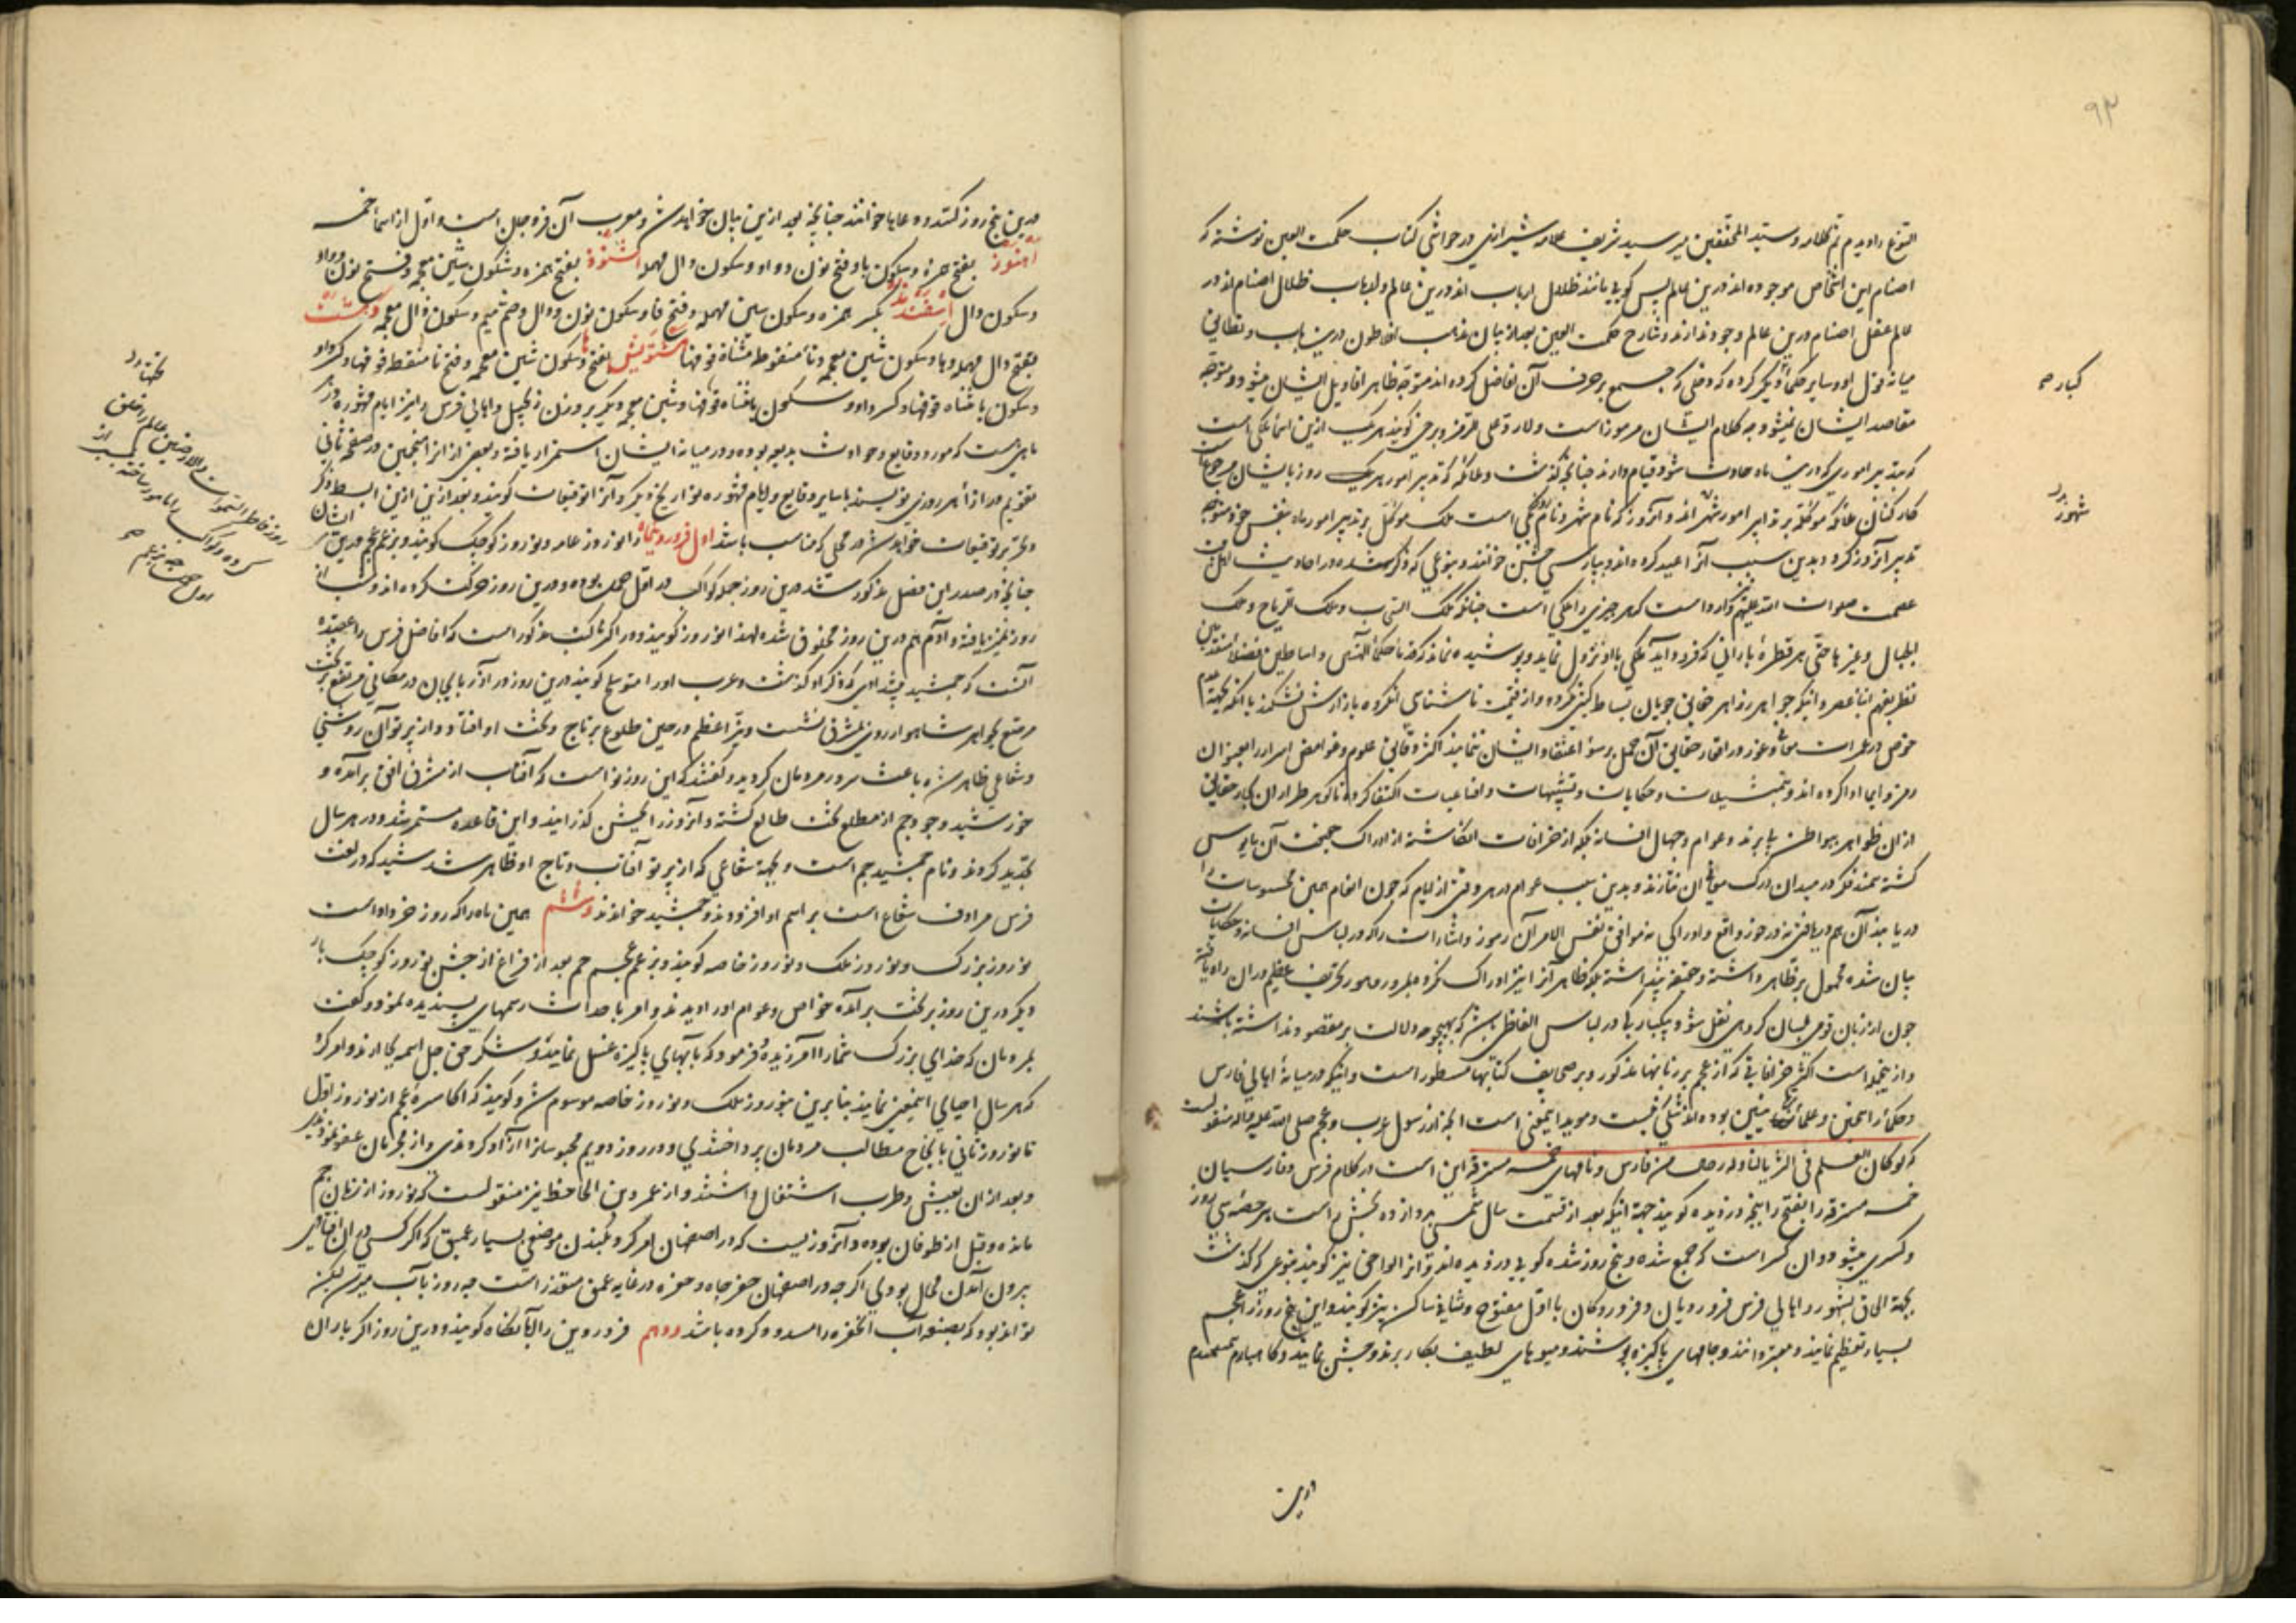 ۹۳
النوع را دیدم تم کلامه و سید المحققین میر سید شریف علامه شیرازی در حواشی کتاب حکمت العین نوشته که
اصنام این اشخاص موجوده اند درین عالم پس کویی مانند ظلال ارباب اند درین عالم و ارباب ظلال اصنام اند در
عالم عقل اصنام درین عالم وجود ندارند و شارح حکمت العین بعد از بیان مذهب افلاطون درین باب و تطابق
میانه قول او و سایر حکما ذکر کرده که وقتی که جمیع بر حرف آن افاضل کرده اند متوجه ظاهر اقاویل ایشان میشود و متوجه
مقاصد ایشان نمیشود چه کلام ایشان مرموز است ولا رد علی الرمز و برخی کویند هر یک ازین اسما ملکی است
که تدبیر اموری که درین ماه حادث شود قیام دارند چنانچه کذشت و ملائکه که تدبیر امور هر یک روز بایشان مرجوعست
کبار صح
کارکنان ملائکه موکله بر تدابیر امور شهر اند و آن روز که نام شهر و نام روز یکی است ملک موکل بر تدبیر امور ماه بنفس خود متوجه
شهور
تدبیر آن روز کردد بدین سبب آنرا عید کرده اند و بپارسی جشن خوانند و بنوعی که ذکر شد و در احادیث اهل بیت
عصمت صلوات الله علیهم وارد است که هر چیزی را ملکی است چنانکه ملک السحاب و ملک الریاح و ملک
الجبال و غیرها حتی هر قطره بارانی که فرود آید ملکی با او نزول نماید و پوشیده نماند که قدما حکما الهی و اساطین فضلا متقدمین
نظر بفهم ابنا عصر و اینکه جواهر زواهر حقایق جویان بساط کیتی کرده و از قیمت ناشناسی انکروه بازارش نشکند یا انکه بجهة عدم
خوض در غمرات معانی و غور در افکار حقایق آن محمل بر سوء اعتقاد ایشان ننمایند اکثر دقایق علوم و غوامض اسرار را بعنوان
رمز و ایما ادا کرده اند و بتمثیلات و حکایات و تشبیهات و اقناعیات اکتفا کرده تا کوهر طراران کبار حقایق
از ان ظواهر ببواطن پی برند و عوام و جهال افسانه بلکه از خرافات انکاشته از ادراک حقیقت آن مایوس
کشته سمند فکر در میدان درک معانی ان نتازند و بدین سبب عوام در هر وقتی از ایام که چون انعام همین محسوسات را
دریابند آن هم دریافتی نه در خور واقع و ادراکی نه موافق نفس الامر آن رموز و اشارات را که در لباس افسانه و حکایات
بیان شده محمول بر ظاهر داشته و حقیقة پنداشته بلکه ظاهر آنرا نیز ادراک نکرده بمرور دهور تحریف عظیم در ان راه یافته
چون از زبان قومی بلسان کروهی نقل شود و یکبارکی در لباس الفاظی باشد که بهیچوجه دلالت بر مقصود نداشته باشند
و از ینجمله است اکثر خرافاتی که از عجم بر زبانها مذکور و بر صحایف کتابها مسطور است و اینکه در میانه اهالی فارس
و حکما راسخین و علما متبینین بوده اند شکی نیست و موید اینمعنی است انچه از رسول عرب و عجم صلی الله علیه و اله منقولست
که لو کان العلم فی الثریا لناوله رجال من فارس و نامهای خمسه مسترقه این است در کلام فرس و فارسیان
خمسه مسترقه را بفتح را پنجه دزدیده کویند جهة اینکه بعد از قسمت سال شمسی بر دوازده بخش است هر حصه سی روز
و کسری میشود و ان کسر است که جمع شده و پنج روز شده کویی دزدیده اند و آنرا لواحق نیز کویند بنوعی که کذشت
بجهة الحاق بشهور و اهالی فرس فروردیان و فروردکان با اول مفتوح و ثانی ساکن نیز کویند و این پنج روز را عجم
بسیار تعظیم نمایند و معتبر دانند و جامهای پاکیزه پوشند و میوهای لطیف بکار برند و جشن نمایند و
درین
درین پنج روز کستند و دعاها خوانند چنانچه بعد ازین بیان خواهد شد و معرب آن فنزه جان است و اول از اسماء خمسه
اهنود بفتح همزه و سکون ها و فتح نون و واو و سکون دال مهمله اشتود بفتح همزه و سکون شین معجمه و فتح نون و واو
و سکون دال اسفندمذ بکسر همزه و سکون سین مهمله و فتح فا و سکون نون و دال و ضم میم و سکون ذال معجمه وهشت
بفتح دال مهمله و ها و سکون شین معجمه و تاء منقوطه مثناة فوقها هشتویش بفتح ها و سکون شین معجمه و فتح تا منقطه فوقها و کسر واو
و سکون یا مثناة فوقها و کسر واو و سکون یا مثناة فوقها و شین معجمه و دیکر بر وزن زنجیل و اهالی فرس را نیز ایام مشهوره دیکر
نامی است که مورد وقایع و حوادث بدیعه بوده و در میانه ایشان استمرار یافته و بعضی از انرا منجمین در صفحه ثانی
تقویم در ازاء هر روزی نویسند با سایر وقایع و ایام مشهوره تواریخ دیکر و آنرا توقیعات کویند و بعد ازین ازین ابسط ذکر
و تحریر توقیعات خواهد شد در محلی که مناسب باشد اول فروردیماه را نوروز عامه و نوروز کوچک کویند و بزعم عجم درین
چنانچه در صدر این فصل مذکور شد درین روز جمله کواکب در اول حمل بوده و درین روز حرکت کرده اند و شب از
روز تمیز یافته و آدم هم درین روز مخلوق شده لهذا نوروز کویند و در اکثر کتب مذکور است که افاضل فرس را عقیده
آنست که جمشید پیشدادی که ذکر او کذشت و عرب او را متوشلخ کویند درین روز در آذربایجان در مکانی مرتفع بر تخت
مرصع بجواهر شاهوار روی بمشرق نشست و نیر اعظم در حین طلوع بر تاج و تخت او افتاد و از پرتو آن روشنی
و شعاعی ظاهر شد باعث سرور مردمان کردید و کفتند که این روز نو است که آفتاب از مشرق افق برآمده و
خورشید وجود جم از مطلع تخت طالع کشته و آن روز را بجشن کذرانیدند و این قاعده مستمر شد و در هر سال
تجدید کردند و نام جمشید جم است و بجهة شعاعی که از پرتو آفتاب و تاج او ظاهر شد شید که در لغت
فرس مرادف شعاع است بر اسم او افزودند و جمشید خواندند و ششم همین ماه را که روز خرداد است
نوروز بزرک و نوروز ملک و نوروز خاصه کویند و بزعم عجم جم بعد از فراغ از جشن نوروز کوچک بار
دیکر درین روز بر تخت برآمده خواص و عوام او را دیدند و امر باحداث رسمهای پسندیده نمود و کفت
بمردمان که خدای بزرک شما را آفریده و فرمود که بآبهای پاکیزه غسل نمایند و شکر حق جل اسمه بجا ارند و امر کرد
که هر سال احیای اینمعنی نمایند بنابرین بنوروز ملک و نوروز خاصه موسوم شد و کویند که اکاسره عجم از نوروز اول
تا نوروز ثانی بانجاح مطالب مردمان پرداختندی و در روز دویم محبوسانرا آزاد کردندی و از مجرمان عفو نمودندی
و بعد از ان بعیش و طرب اشتغال داشتند و از عمرو بن الحافظ نیز منقولست که نوروز از زمان جم
مانده و قبل از طوفان بوده و آن روز یست که در اصفهان امر کرد بکندن موضعی بسیار عمیق که اکر کسی در ان افتادی
بیرون آمدن محال بودی اکر چه در اصفهان حفر چاه و حفره در غایه عمق متعذر است چه زود بآب میرسد لیکن
تواند بود که بصنعه آب انحفره را مسدود کرده باشند و دهم فروردین را آبانکاه کویند و درین روز اکر باران
روز فاطر السموات و الارضین عالم را خلق
کرده و کواکب را مامور ساخته بسیر از